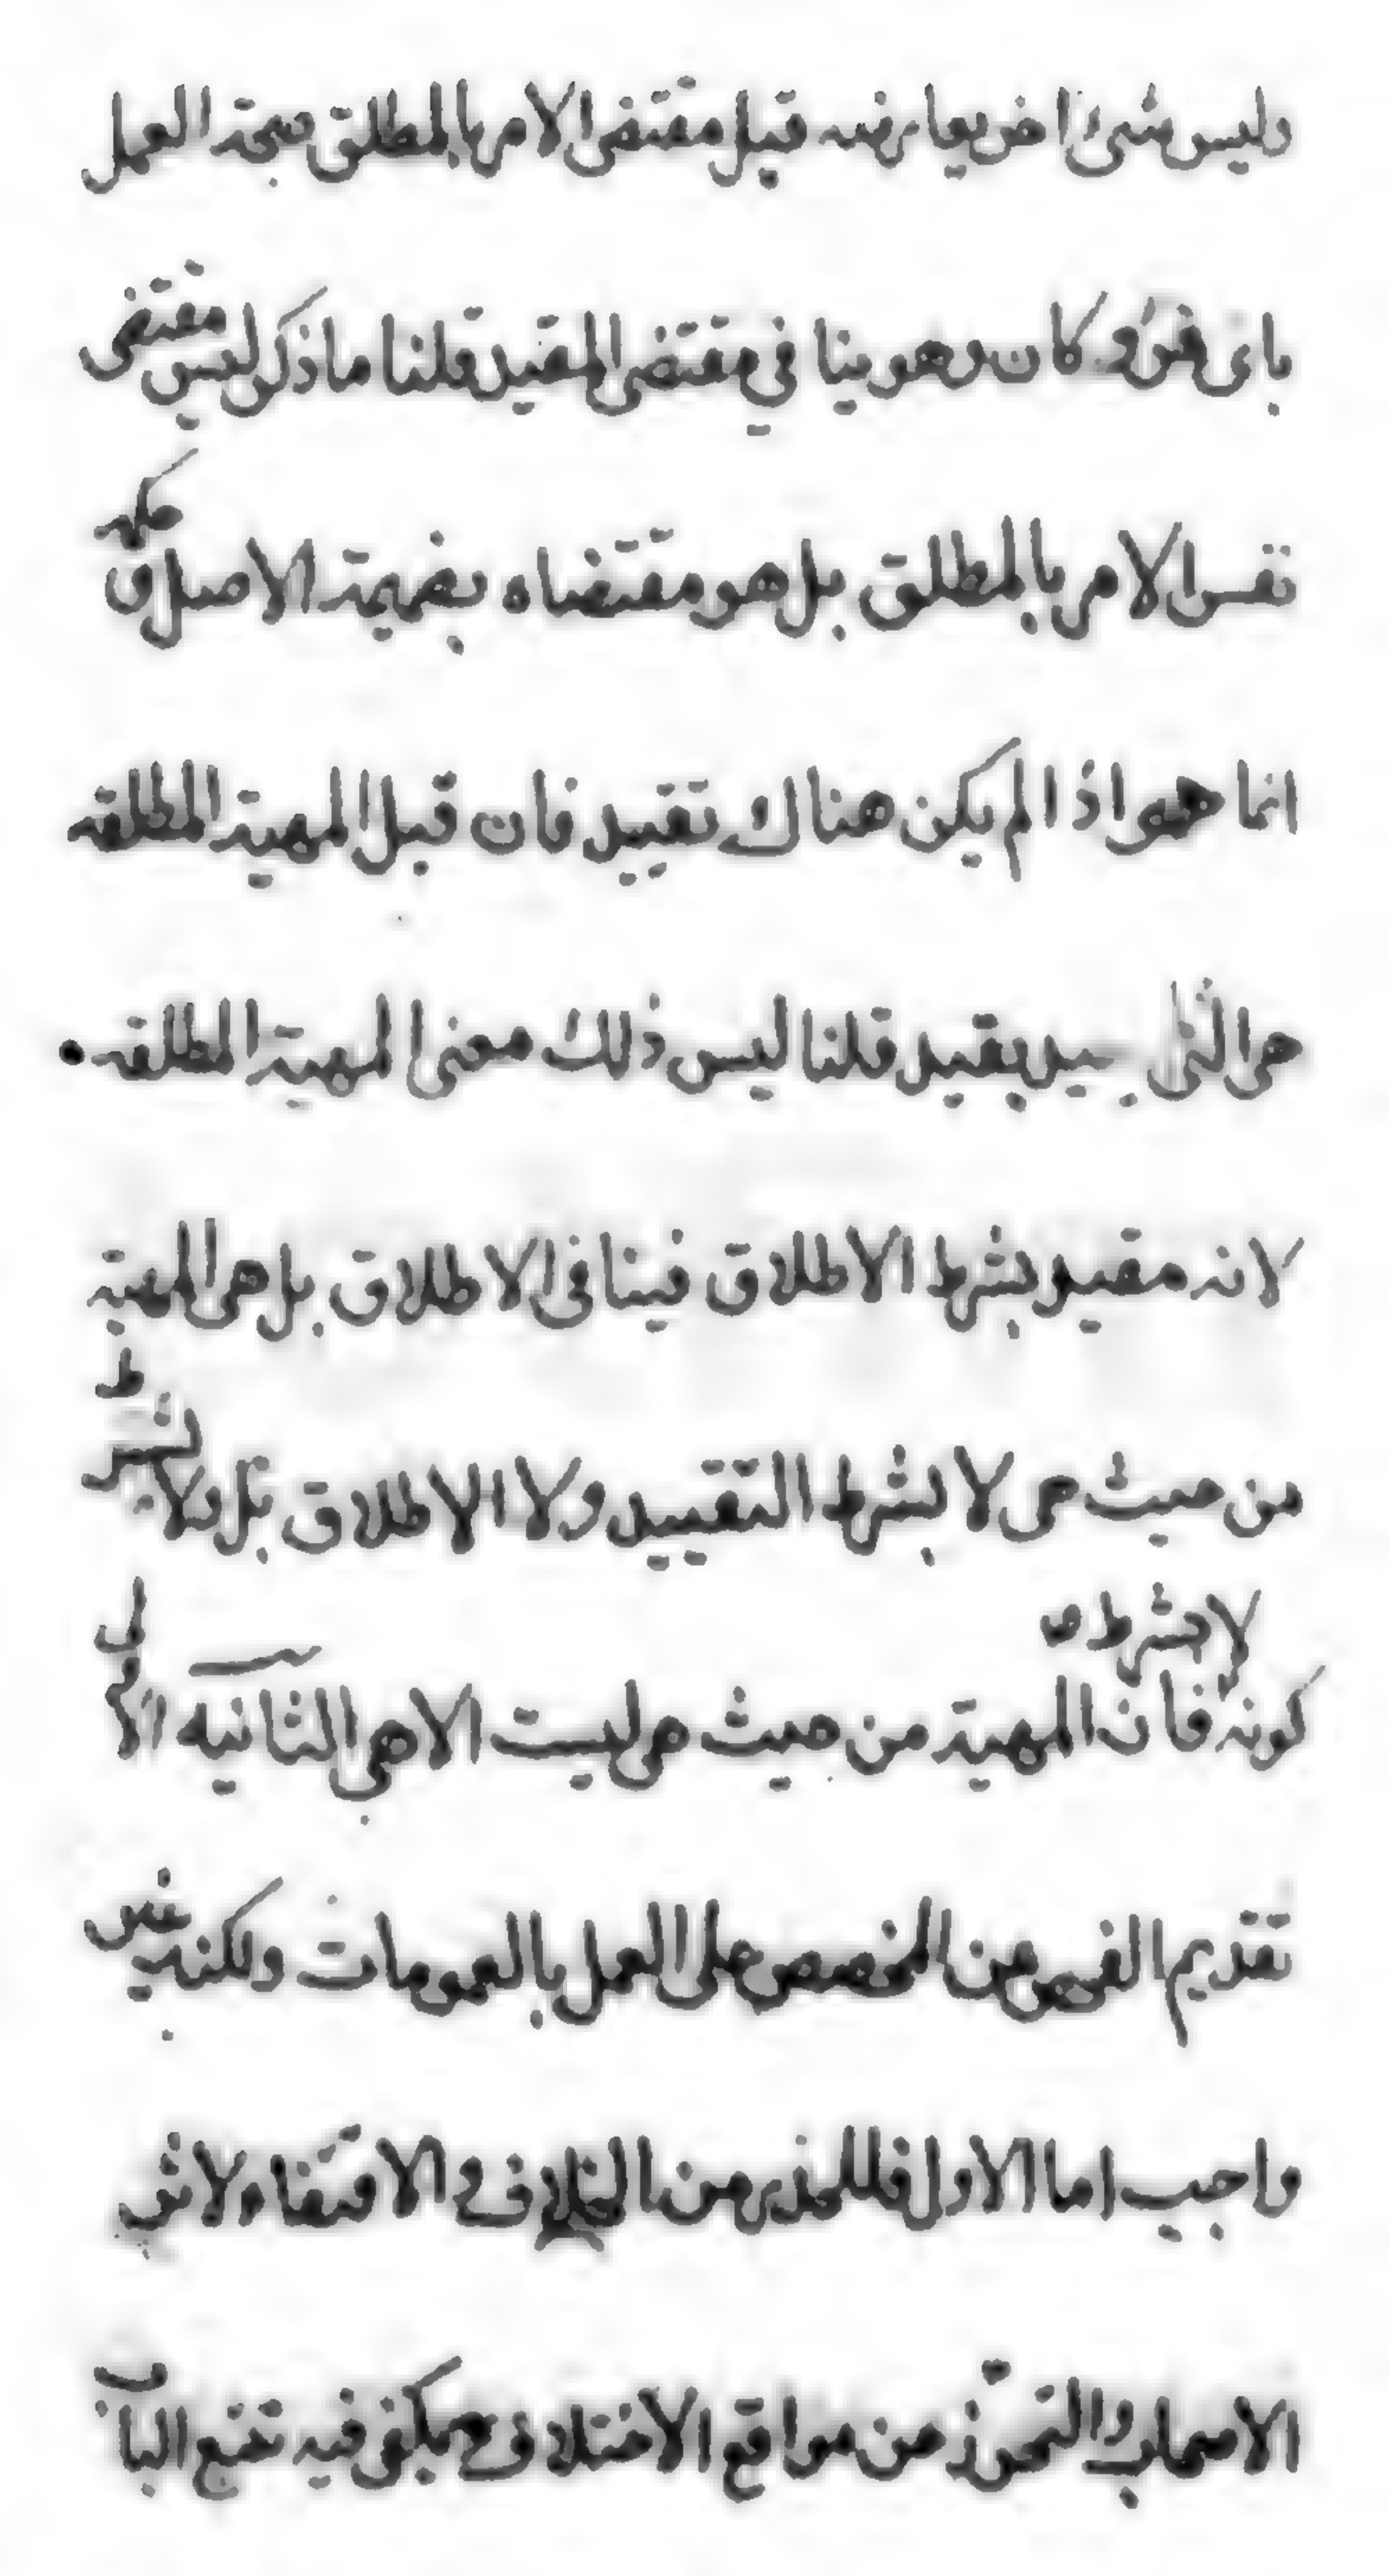 وليس شئ اخر يعارضه قيل مقتضى الامر بالمطلق صحة العمل
باى فرد كان وهو ينافي مقتضى المقيد قلنا ما ذكر ليس مقتضى
نفس الامر بالمطلق بل هو مقتضاه بضميمة الاصل و حكمه
انما هو اذا لم يكن هناك تقييد فان قيل المهية المطلقه
هى التى بقيد قلنا ليس ذلك معنى المهية المطلقه
لانه مقيد بشرط الاطلاق فينافى الاطلاق بل هى المهية
من حيث هى لا بشرط التقييد ولا الاطلاق بل ولا بشرط
لا بشرط
كونه فان المهية من حيث هى ليست الا هى الثانيه الاولى
تقديم الفحص عن المخصص على العمل بالعمومات ولكنه غير
واجب اما الاول فللحذر من الخلاف في الاقتفاء لاثر
الاصحاب والتحرز عن مواقع الاختلاف ويكفى فيه تتبع الباب